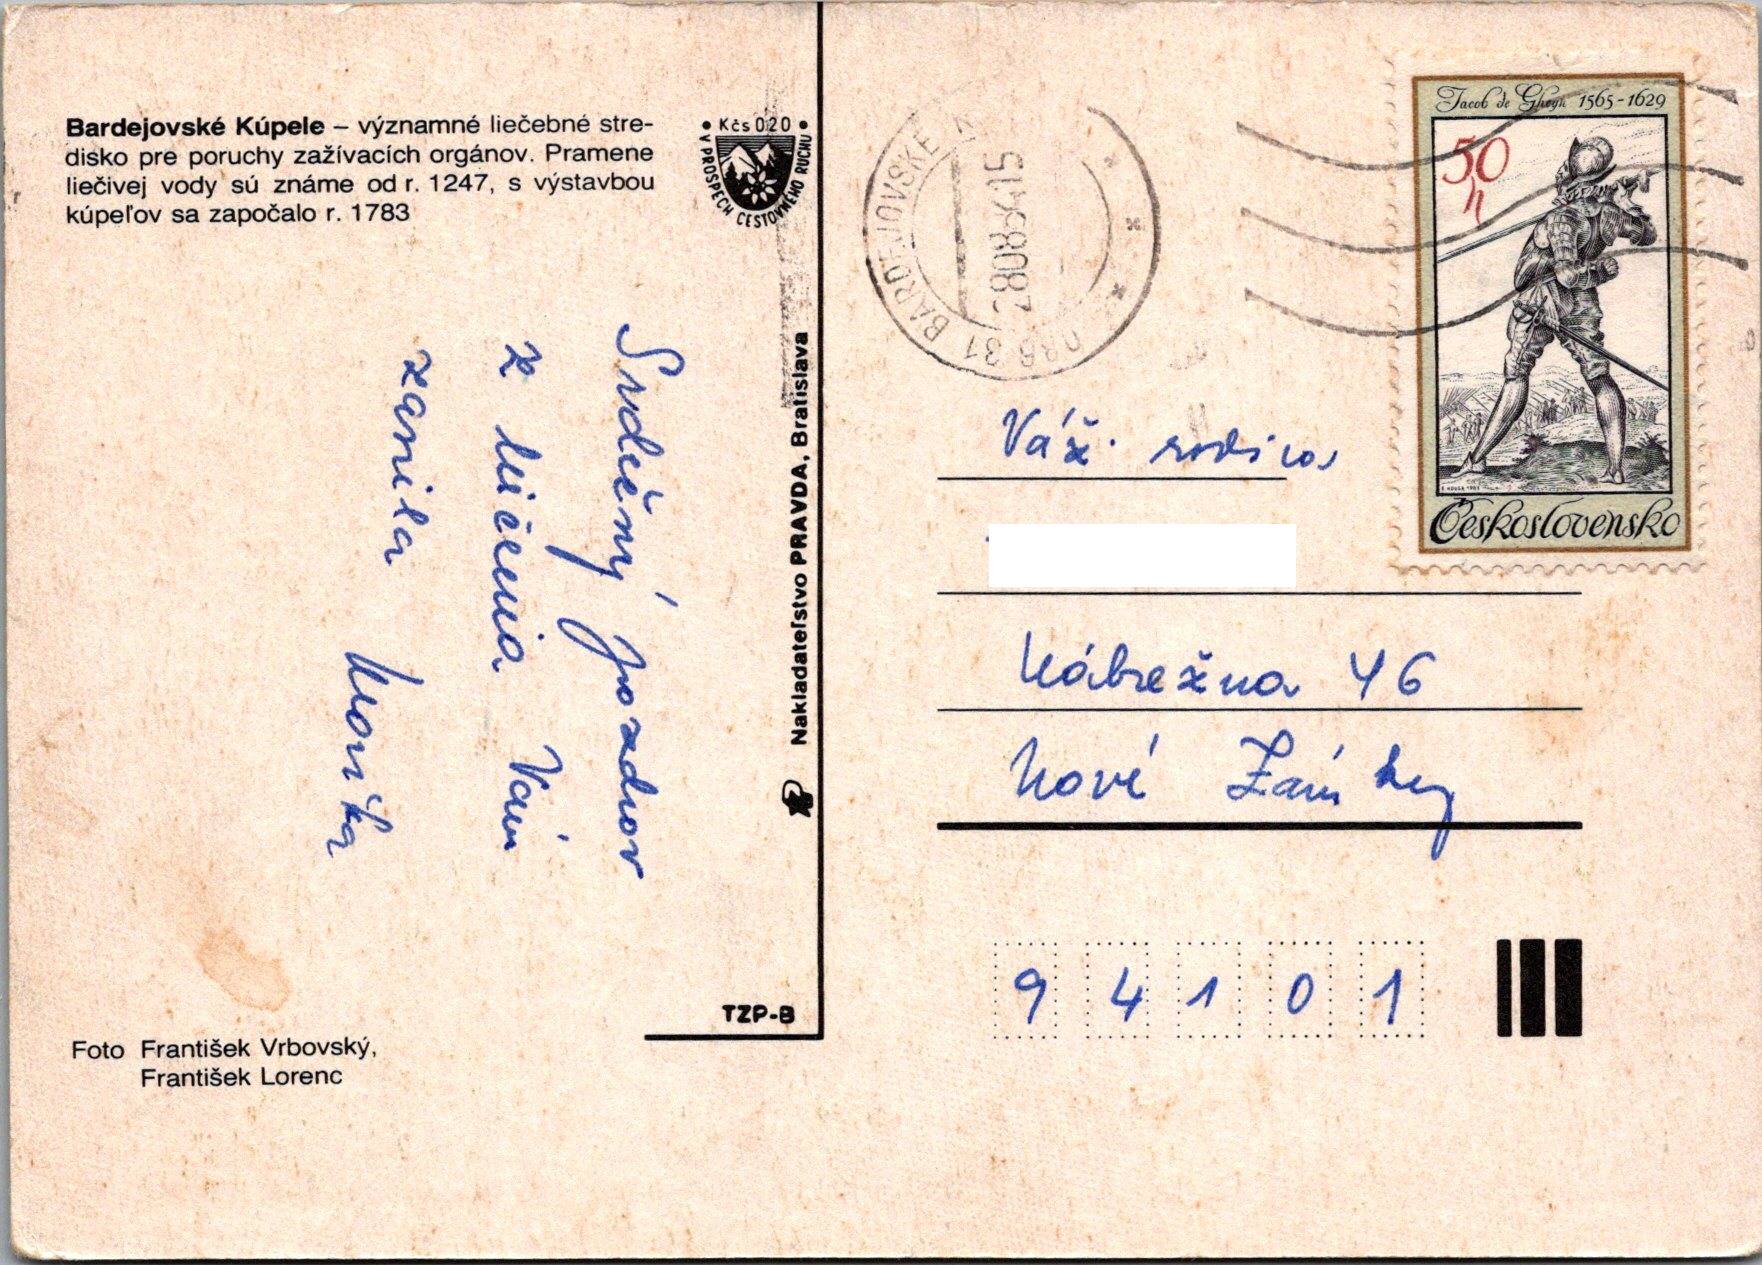 Bardejovské Kúpele – významné liečebné stre-
disko pre poruchy zažívacích orgánov. Pramene
liečivej vody sú známe od r. 1247, s výstavbou
kúpeľov sa započalo r. 1783
• Kčs 0,20 •
V PROSPECH CESTOVNÉHO RUCHU
Srdečný pozdrav
z liečenia Vám
zasiela Monika
Nakladateľstvo PRAVDA, Bratislava
TZP-B
Foto František Vrbovský,
František Lorenc
086 31 BARDEJOVSKÉ
Jacob de Gheyn 1565-1629
50
h
Československo
Váž. rodina
Nábrežna 46
Nové Zámky
94101